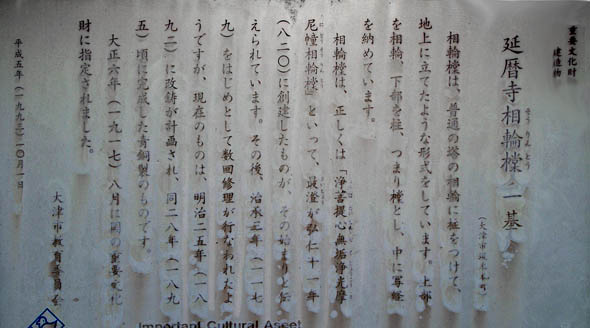 重要文化財
建造物
延暦寺相輪橖 一基
そうりんとう
(大津市坂本本町)
相輪橖は、普通の塔の相輪に柱をつけて、
地上に立てたような形式をしています。上部
を相輪、下部を柱、つまり橖とし、中に写経
を納めています。
相輪橖は、正しくは「浄菩提心無垢浄光摩
尼幢相輪橖」といって、最澄が弘仁十一年
(八二〇)に創建したものが、その始まりと伝
えられています。その後、治承三年(一一七
九)をはじめとして数回修理が行なわれたよ
うですが、現在のものは、明治二五年(一八
九二)に改鋳が計画され、同二八年(一八九
五)頃に完成した青銅製のものです。
大正六年(一九一七)八月に国の重要文化
財に指定されました。
大津市教育委員会
平成五年(一九九三)一〇月一日
Important Cultural Asset